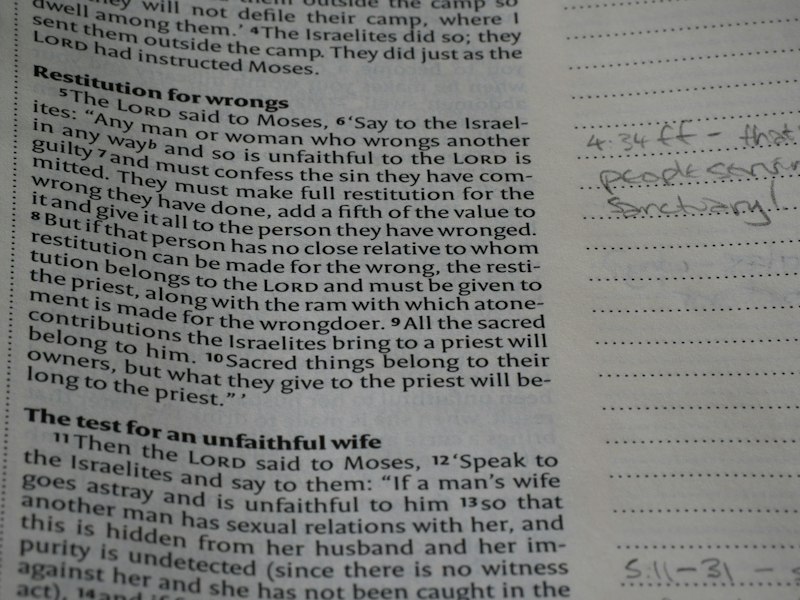 they will not defile their camp, where I
dwell among them.’ 4The Israelites did so; they
sent them outside the camp. They did just as the
LORD had instructed Moses.
Restitution for wrongs
5The LORD said to Moses, 6‘Say to the Israel-
ites: “Any man or woman who wrongs another
in any wayb and so is unfaithful to the LORD is
guilty 7and must confess the sin they have com-
mitted. They must make full restitution for the
wrong they have done, add a fifth of the value to
it and give it all to the person they have wronged.
8But if that person has no close relative to whom
restitution can be made for the wrong, the resti-
tution belongs to the LORD and must be given to
the priest, along with the ram with which atone-
ment is made for the wrongdoer. 9All the sacred
contributions the Israelites bring to a priest will
belong to him. 10Sacred things belong to their
owners, but what they give to the priest will be-
long to the priest.” ’
The test for an unfaithful wife
11Then the LORD said to Moses, 12‘Speak to
the Israelites and say to them: “If a man’s wife
goes astray and is unfaithful to him 13so that
another man has sexual relations with her, and
this is hidden from her husband and her im-
purity is undetected (since there is no witness
against her and she has not been caught in the
act), 14and
4.34ff – that
people
sanctuary!
5:11–31 –